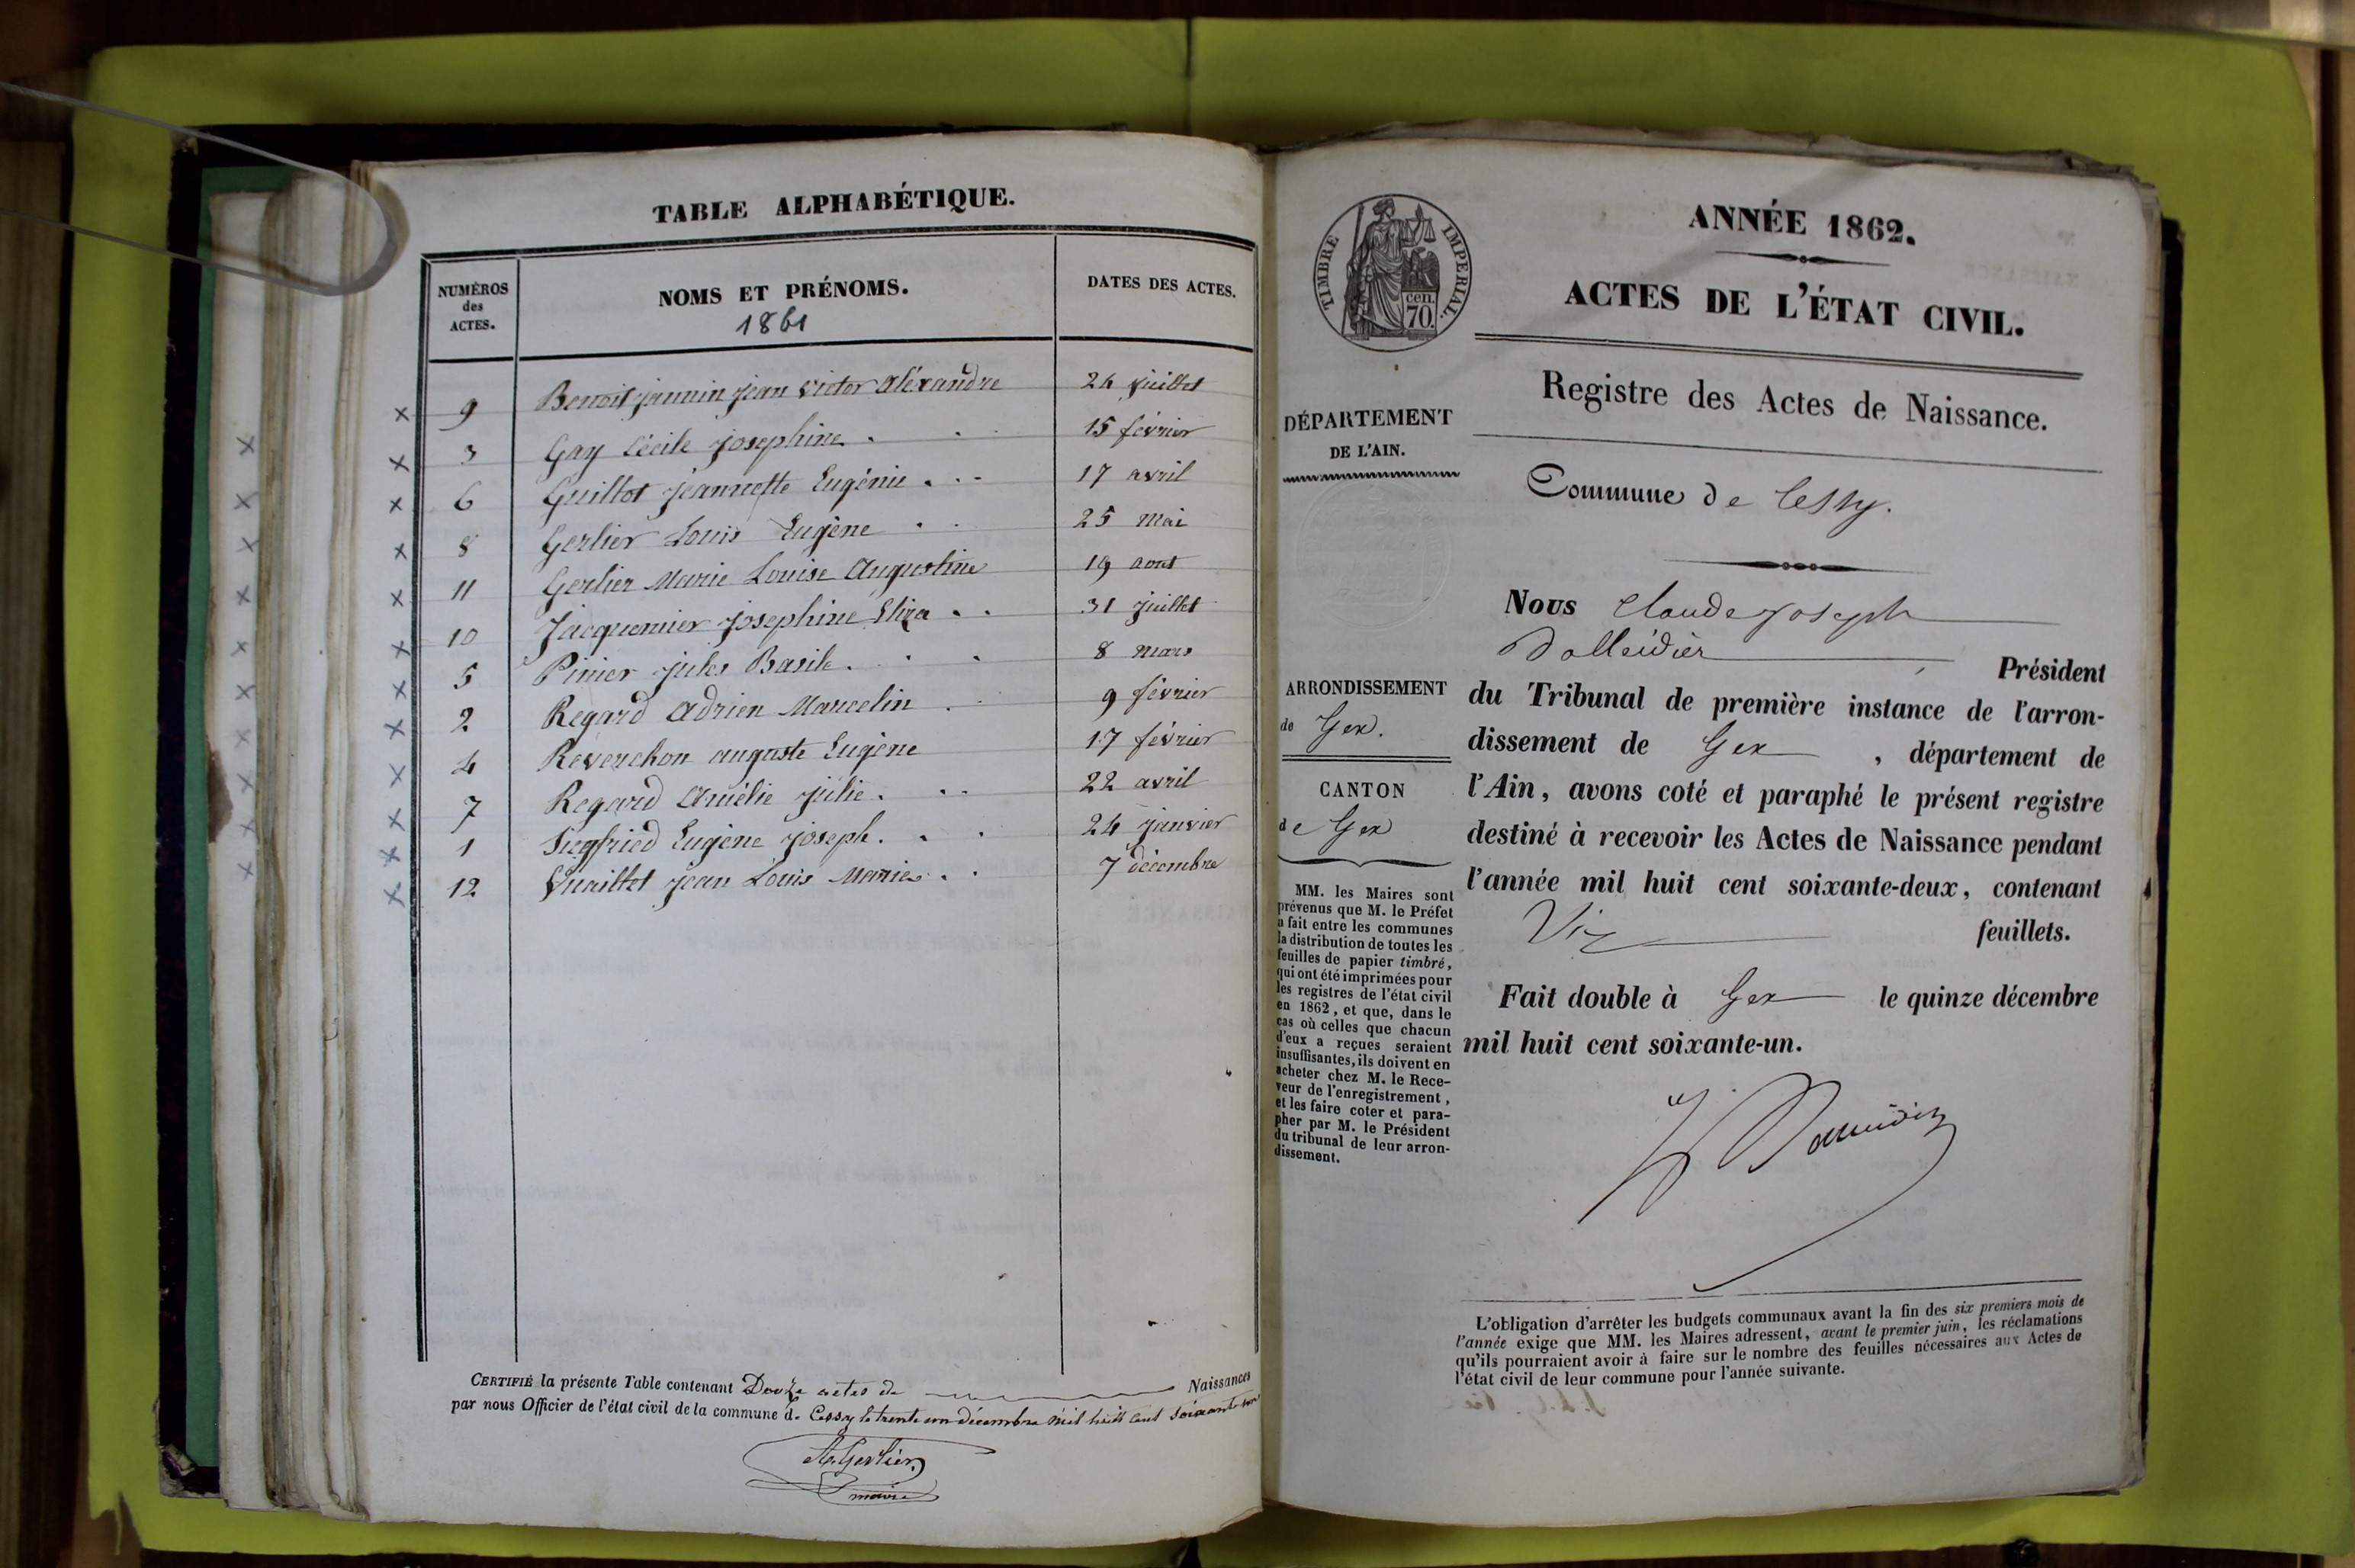 TABLE ALPHABÉTIQUE.
NUMÉROS des ACTES. NOMS ET PRÉNOMS. DATES DES ACTES.
1861
9 Benoit jannin jean victor alexandre 24 juillet
3 Gay Cécile josephine 15 février
6 Guillot jeannette Eugénie 17 avril
8 Gerlier Louis Eugène 25 mai
11 Gerlier Marie Louise Augustine 19 aout
10 Jacquemier josephine Eliza 31 juillet
5 Pinier jules Basile 8 mars
2 Regard adrien Marcelin 9 février
4 Reverchon auguste Eugène 17 février
7 Regard Amélie julie 22 avril
1 Siegfried Eugène joseph 24 janvier
12 Vuaillet jean Louis Marie 7 décembre
CERTIFIÉ la présente Table contenant Douze actes de Naissances
par nous Officier de l'état civil de la commune de Cessy le trente un décembre mil huit cent soixante un
Gerlier
maire
TIMBRE IMPERIAL.
cen.
70.
ANNÉE 1862.
ACTES DE L'ÉTAT CIVIL.
Registre des Actes de Naissance.
DÉPARTEMENT
DE L'AIN.
Commune de Cessy.
Nous Claude joseph
Président
ARRONDISSEMENT
de Gex.
CANTON
de Gex
du Tribunal de première instance de l'arron-
dissement de Gex , département de
l'Ain, avons coté et paraphé le présent registre
destiné à recevoir les Actes de Naissance pendant
l'année mil huit cent soixante-deux, contenant
feuillets.
Fait double à Gex le quinze décembre
mil huit cent soixante-un.
MM. les Maires sont
prévenus que M. le Préfet
a fait entre les communes
la distribution de toutes les
feuilles de papier timbré,
qui ont été imprimées pour
les registres de l'état civil
en 1862, et que, dans le
cas où celles que chacun
d'eux a reçues seraient
insuffisantes, ils doivent en
acheter chez M. le Rece-
veur de l'enregistrement,
et les faire coter et para-
pher par M. le Président
du tribunal de leur arron-
dissement.
L'obligation d'arrêter les budgets communaux avant la fin des six premiers mois de
l'année exige que MM. les Maires adressent, avant le premier juin, les réclamations
qu'ils pourraient avoir à faire sur le nombre des feuilles nécessaires aux Actes de
l'état civil de leur commune pour l'année suivante.